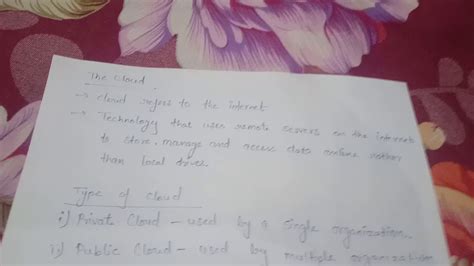 The Cloud.
→ Cloud refers to the internet
→ Technology that uses remote servers on the internet
to store, manage and access data online rather
than local drives.
Type of Cloud
i) Private Cloud - used by a single organization.
ii) Public Cloud - used by multiple organization